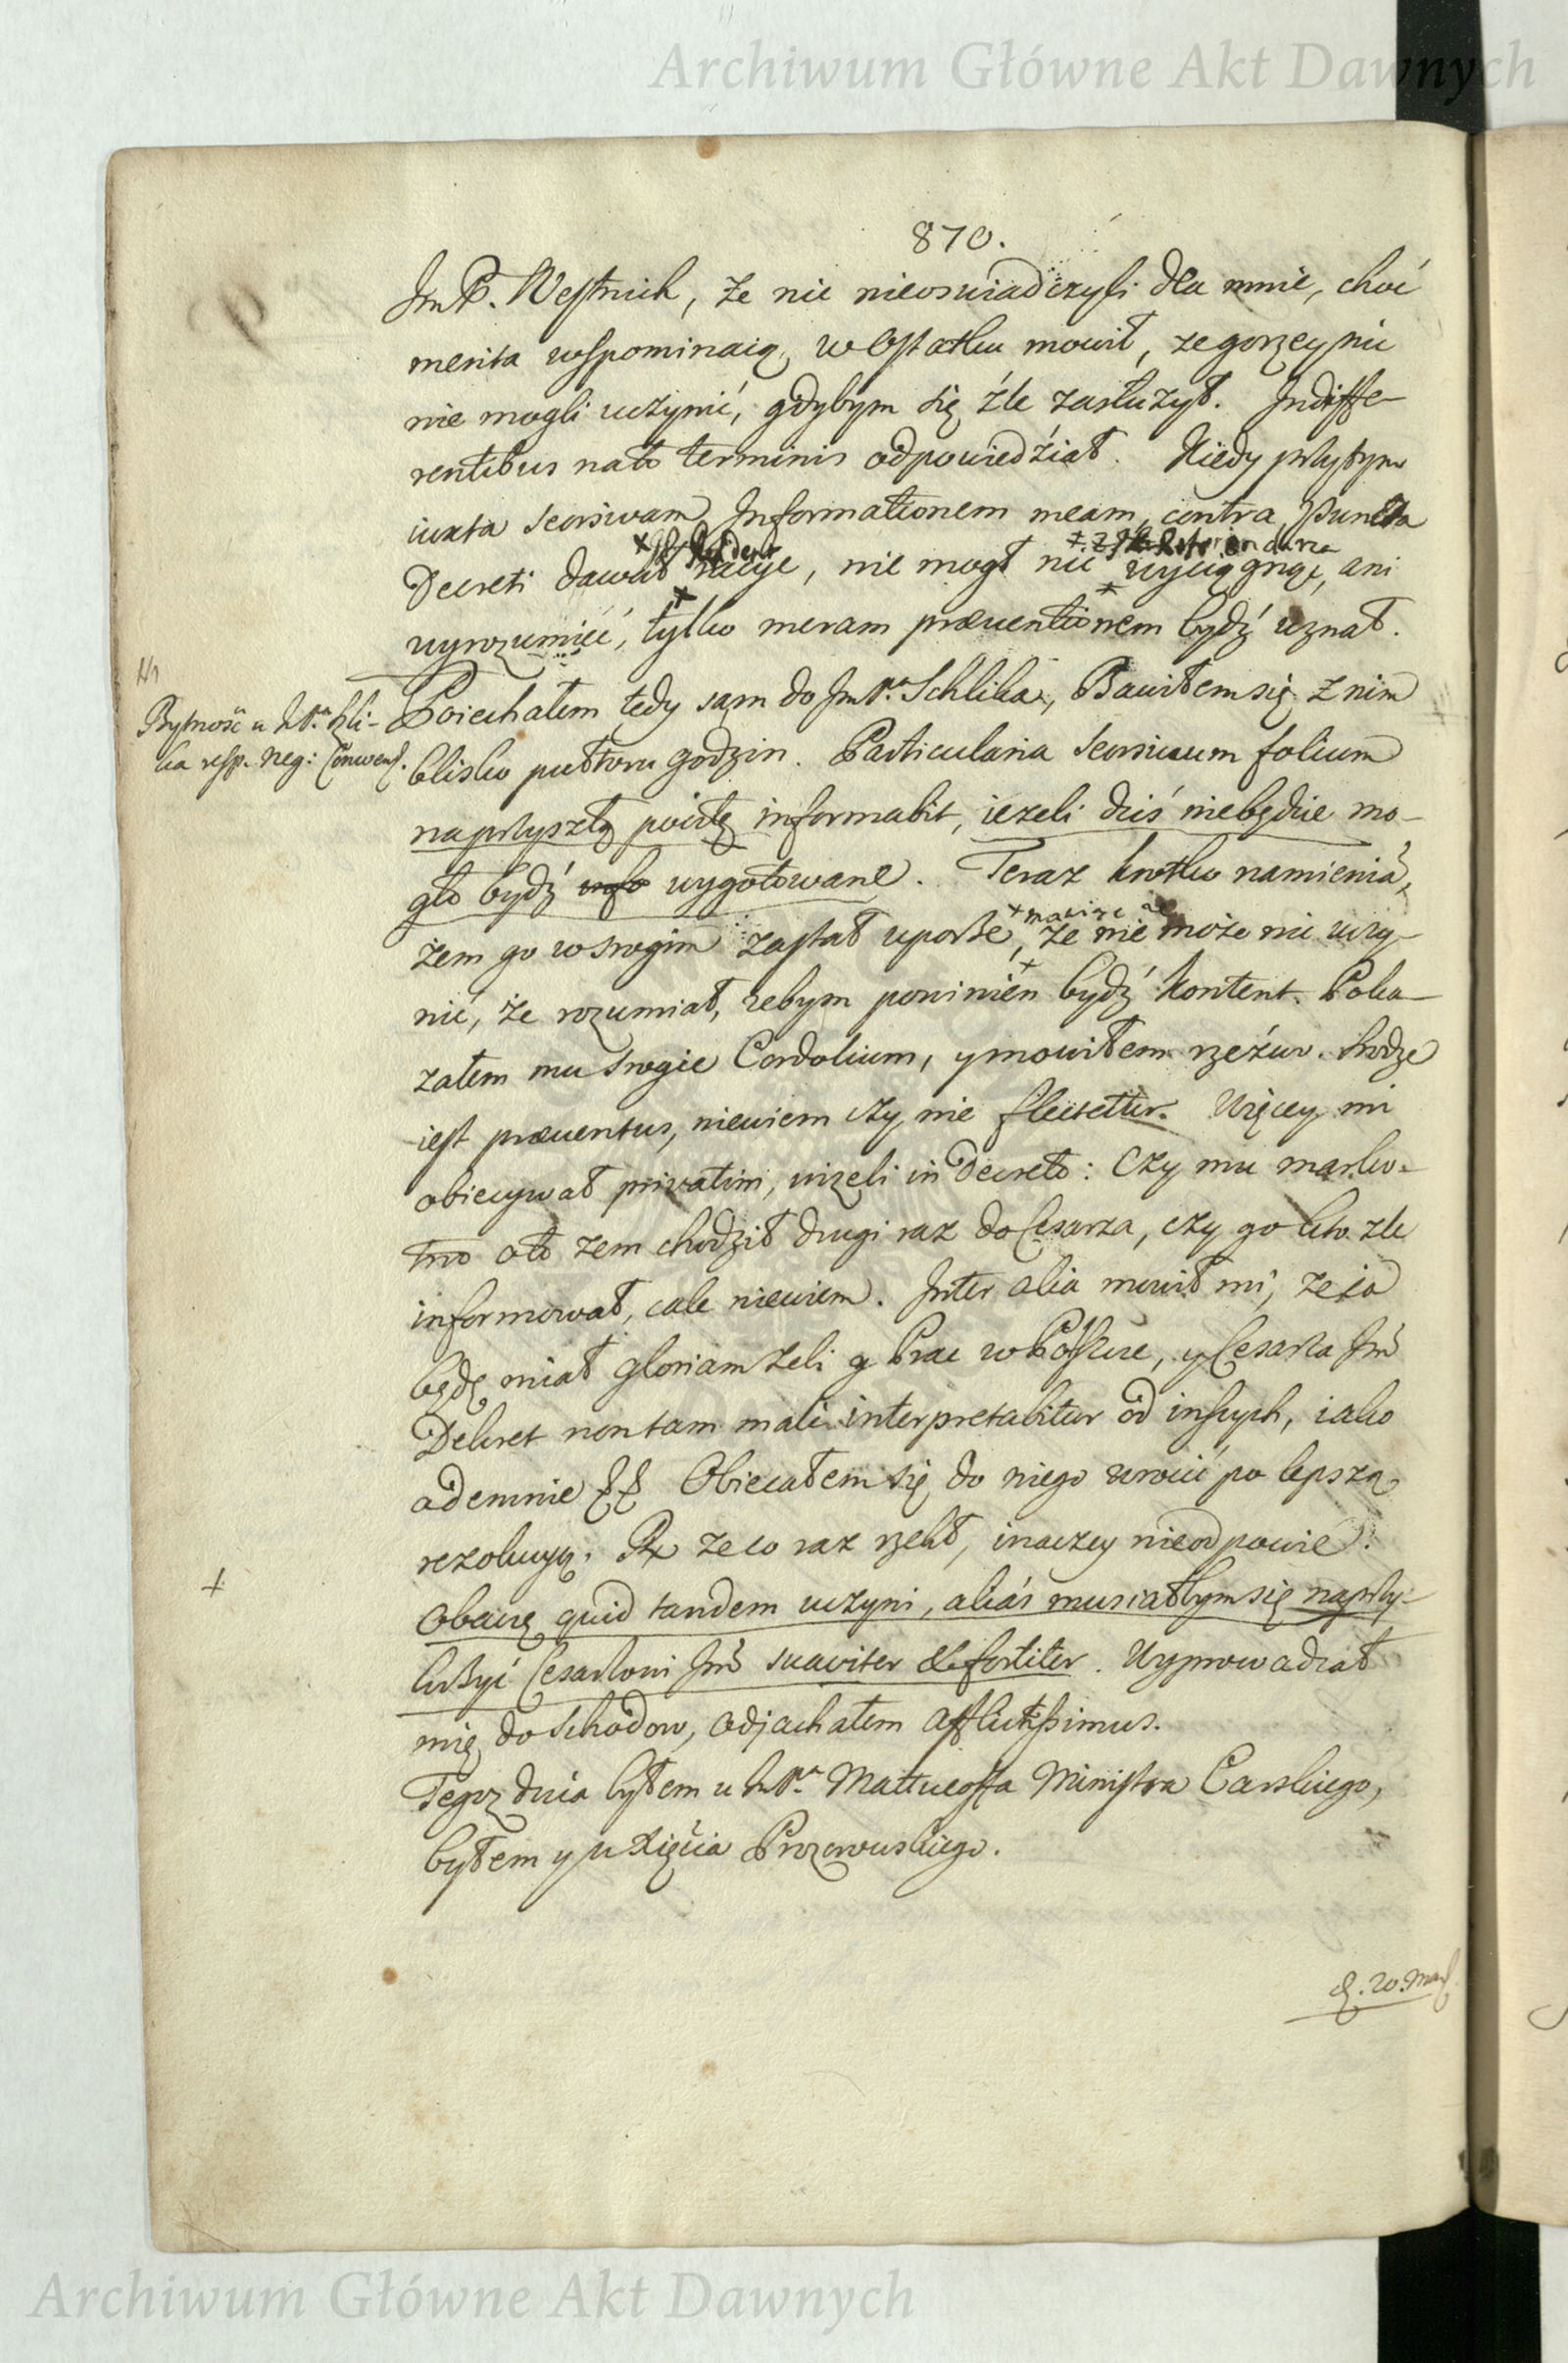 Archiwum Główne Akt Dawnych
870.
Jm P. Westnich, że nic nieoswiadczyli dla mnie, choć
merita wspominaią, w ostatku mowił, ze gorzey nic
nie mogli uczynić, gdybym się źle zasłużył. Indiffe-
rentibus nato terminis odpowiedźiał. Kiedy przytym
iuxta seorsivam Informationem meam, contra Puncta
Decreti dawał racye, nie mogł nic wyciągnąć, ani
wyrozumieć, tylko meram præventionem bydź uznał.
Bytność u JmPa. Szli-
ka resp. neg: Conwens.
Poiechałem tedy sam do JmPa. Schlika, Bawiłem się z nim
blisko pułtoru godzin. Particularia seorsivum folium
naprzyszłą pocztę informabit, ieżeli dziś niebędzie mo-
gło bydź wygotowane. Teraz krotko namienię,
żem go w srogim zastał uporze, że nie może nic uczy-
nić, że rozumiał, zebym powinien bydź kontent. Poka-
załem mu srogie Cordolium, y mowiłem rzeźwo. Srodze
iest præventus, niewiem czy nie flectetur. Więcey mi
obiecywał privatim, niżeli in Decreto: Czy mu markot-
no oto żem chodził drugi raz do Cesarza, czy go kto źle
informował, cale niewiem. Inter alia mowił mi, że ja
będę miał gloriam zeli y Prac w Polszcze, y Cesarza Jmć
Dekret non tam male interpretabitur od inszych, iako
odemnie Obiecałem się do niego wrocić po lepszą
rezolucyą. Rx że co raz rzekł, inaczey nieodpowie.
Obaczę quid tandem uczyni, alias musiałbym się naprzy-
krzyć Cesarzowi Jmć suaviter & fortiter. Wyprowadzał
mię do schodow, odjachałem afflictissimus.
Tegoż dnia byłem u JmPa. Mattueoffa Ministra Carskiego,
byłem y u Xięcia Prozorowskiego.
Archiwum Główne Akt Dawnych